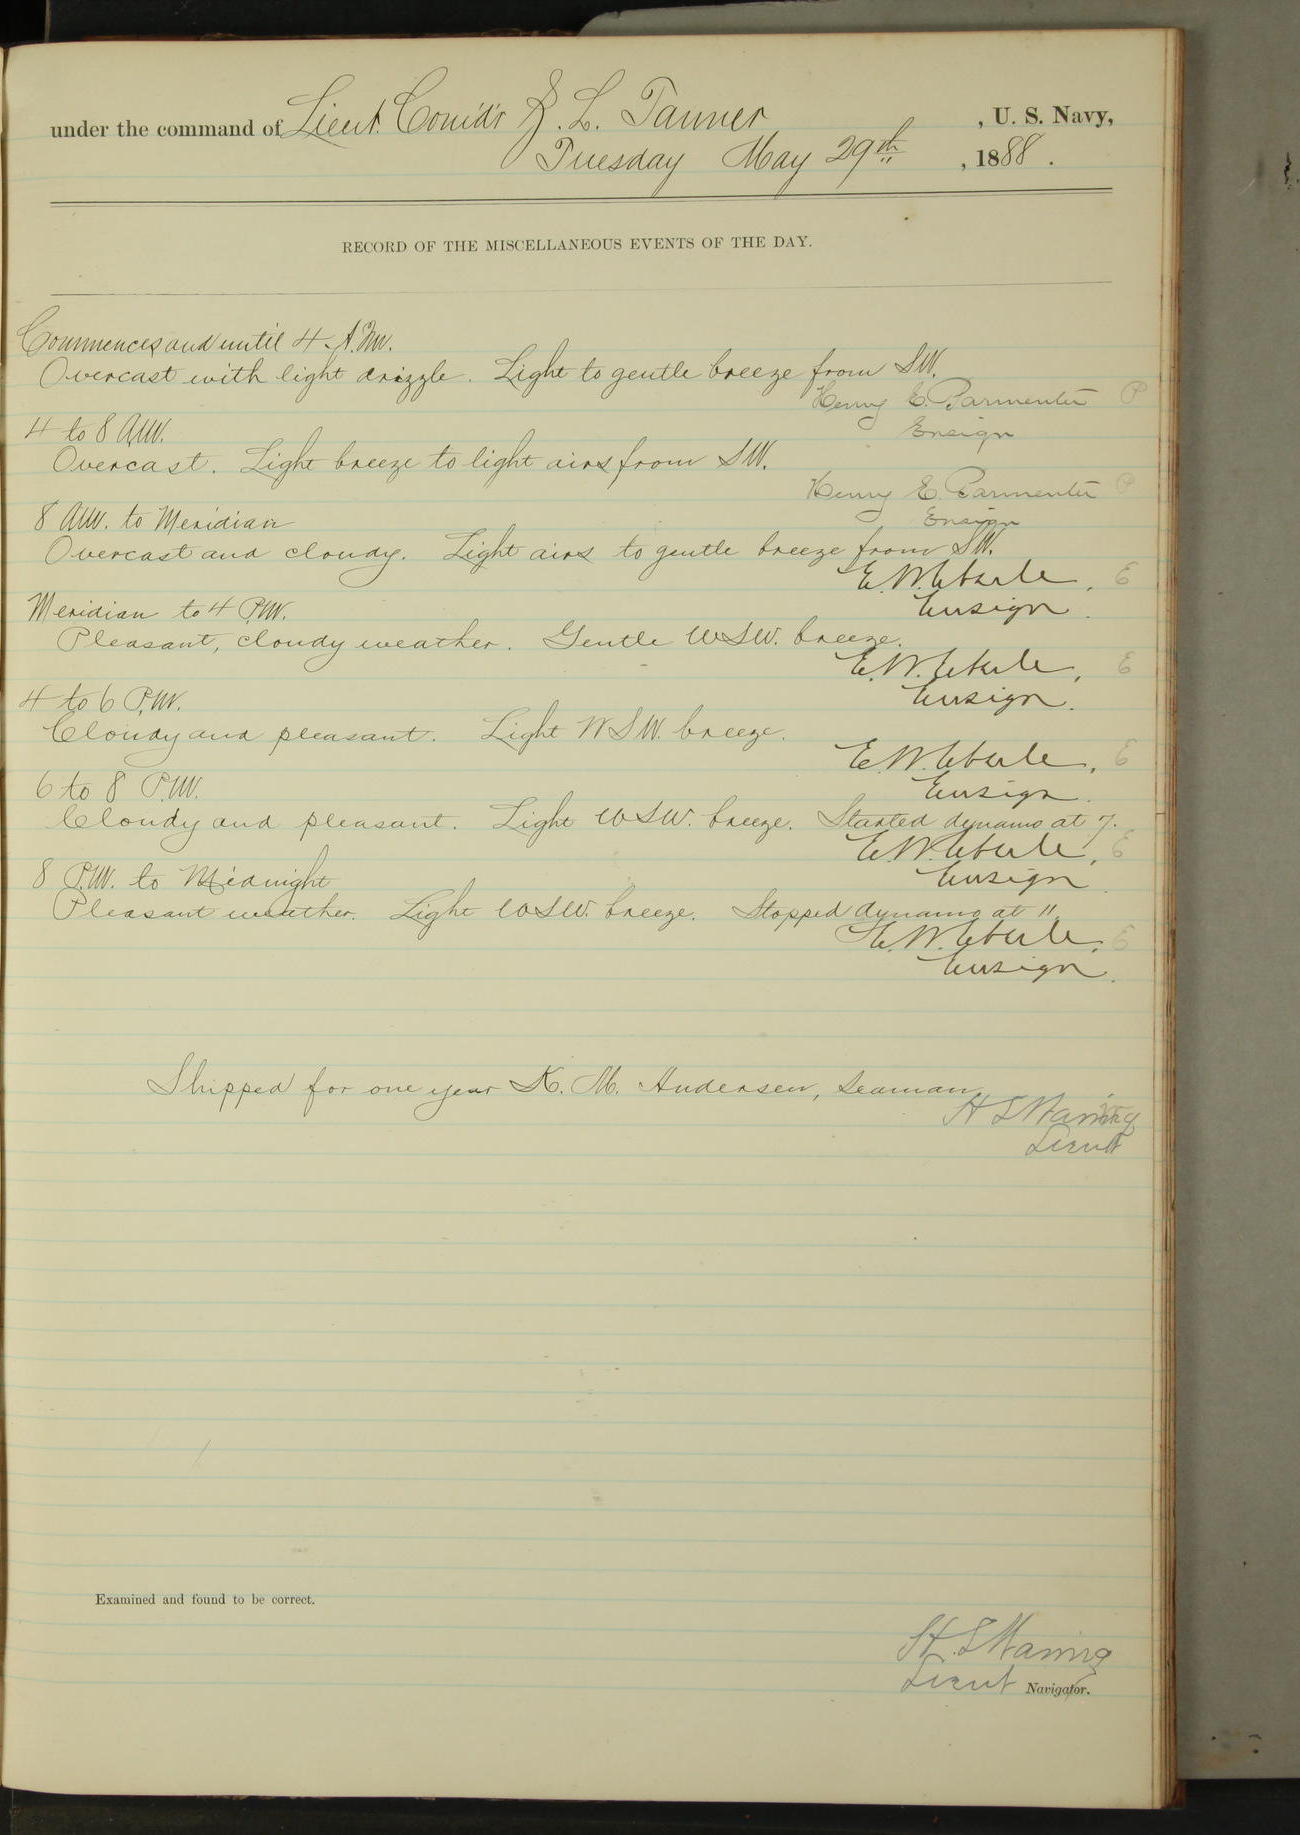 under the command of Lieut. Comd'r Z. L. Tanner, U. S. Navy,
Tuesday May 29th, 1888.
RECORD OF THE MISCELLANEOUS EVENTS OF THE DAY.
Commences and until 4 A.M.
Overcast with light drizzle. Light to gentle breeze from SW.
Henry E. Parmenter P
Ensign
4 to 8 A.M.
Overcast. Light breeze to light airs from SW.
Henry E. Parmenter P
Ensign
8 A.M. to Meridian
Overcast and cloudy. Light airs to gentle breeze from SW.
E. W. Eberle, E
Ensign.
Meridian to 4 P.M.
Pleasant, cloudy weather. Gentle WSW. breeze.
E. W. Eberle, E
Ensign.
4 to 6 P.M.
Cloudy and pleasant. Light WSW. breeze.
E. W. Eberle, E
Ensign.
6 to 8 P.M.
Cloudy and pleasant. Light WSW. breeze. Started dynamo at 7.
E. W. Eberle, E
Ensign.
8 P.M. to Midnight
Pleasant weather. Light WSW. breeze. Stopped dynamo at 11.
E. W. Eberle, E
Ensign.
Shipped for one year K. M. Andersen, Seaman
H S Waring
Lieut
Examined and found to be correct.
H. S Waring
Lieut Navigator.